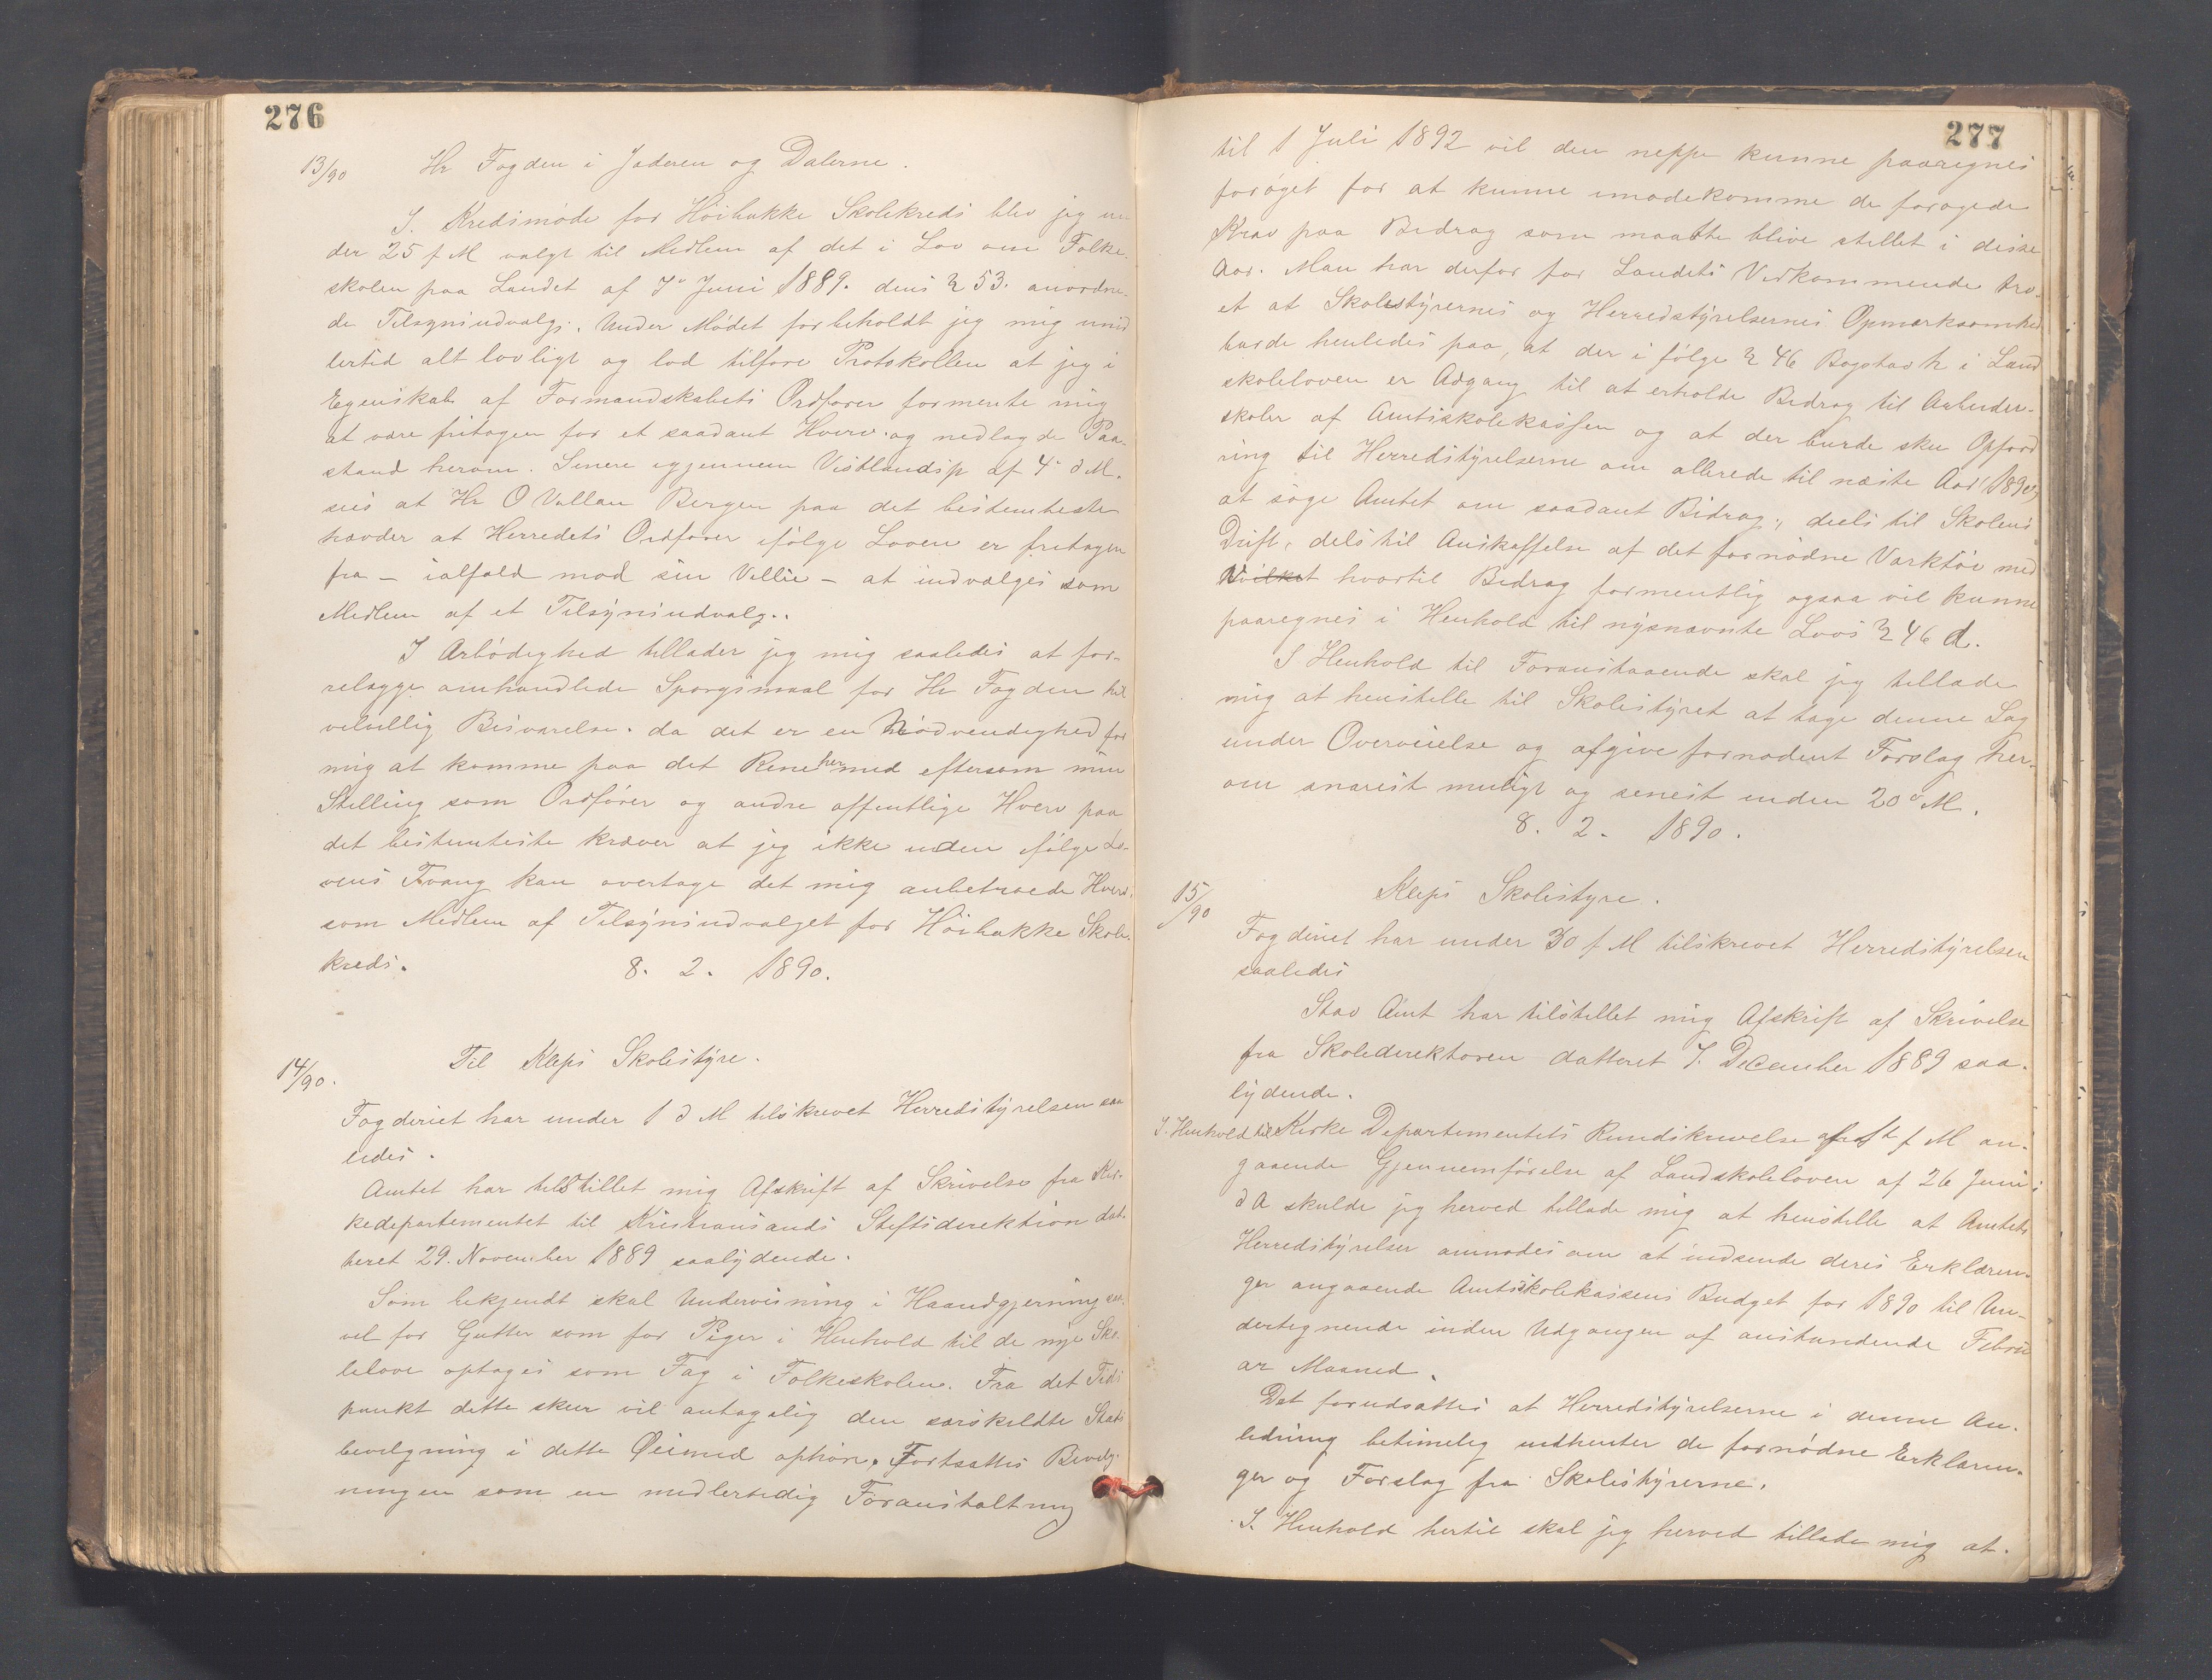 276
13/90 Hr Fogden i Jæderen og Dalerne.
I. Kredsmøde for Höibakke Skolekreds blev jeg un
der 25 f M valgt til Medlem af det i Lov om Folke
skolen paa Landet af Juni 1889. dens § 53. anordne-
de Tilsynsudvalg. Under Mødet forbeholdt jeg mig imid
lertid alt lovligt og lod tilføre Protokollen at jeg i
Egenskab af Formandskabets Ordfører formente mig
at være fritagen for et saadant Hverv. og nedlagde Paa-
stand herom. Senere igjennem Vestlandsp af 4 d M.
sees at Hr O Vollan Bergen paa det bestemteste
hævder at Herredets Ordfører ifølge Loven er fritagen
fra – ialfald mod sin Villie – at indvælges som
Medlem af et Tilsynsudvalg..
I Ærbödighed tillader jeg mig saaledes at fore-
relægge omhandlede Spørgsmaal for Hr Fogden til
velvillig Besvarelse. da det er en Nødvendighed for
mig at komme paa det Rene hermed eftersom min
Stilling som Ordfører og andre offentlige Hverv paa
det bestemteste kræver at jeg ikke uden ifølge Lo-
vens Tvang kan overtage det mig anbetroede Hverv.
som Medlem af Tilsynsudvalget for Höibakke Skole-
kreds. 8. 2. 1890.
14/90. Til Kleps Skolestyre.
Fogderiet har under 1 d M tilskrevet Herredstyrelsen saa
ledes.
Amtet har tilstillet mig Afskrift af Skrivelse fra Kir-
kedepartementet til Kristiansands Stiftsdirektion dat-
teret 29. November 1889 saalydende.
Som bekjendt skal Undervisning i Haandgjerning saa-
vel for Gutter som for Piger i Henhold til de nye Sko-
lelove optages som Fag i Folkeskolen. Fra det Tids
punkt dette skeer vil antagelig den særskildte Stats
bevilgning i dette Øiemed ophøre. Fortsættes Bevilg-
ningen som en midlertidig Foranstaltning
277
til 1 Juli 1892 vil den neppe kunne paaregnes
forøget for at kunne imødekomme de forøgede
Krav paa Bidrag som maatte blive stillet i disse
Aar. Man har derfor for Landets Vedkommende tro-
et at Skolestyrernes og Herredstyrelsernes Opmærksomhed
burde henledes paa, at der i følge § 46 Bogstav h i Land
skoleloven er Adgang til at erholde Bidrag til Arbeider-
skoler af Amtsskolekassen og at der burde skee Opford
ring til Herredstyrelserne om allerede til næste Aar (1890)
at søge Amtet om saadant Bidrag, deels til Skolens
Drift, dels til Anskaffelse af det fornødne Værktøi med
hvilket hvortil Bidrag formentlig ogsaa vil kunne
paaregnes i Henhold til nysnævnte Lovs § 46 d.
I Henhold til Foranstaaende skal jeg tillade
mig at henstille til Skolestyret at tage denne Sag
under Overveielse og afgive fornødent Forslag her-
om snarest muligt og senest inden 20 d M.
8. 2. 1890.
15/90 Kleps Skolestyre.
Fogderiet har under 30 f M tilskrevet Herredstyrelsen
saaledes
Stav Amt har tilstillet mig Afskrift af Skrivelse
fra Skoledirektøren datteret 7. December 1889 saa-
lydende.
I. Henhold til Kirke Departementets Rundskrivelse af f M an-
gaaende Gjennemførelse af Landskoleloven af 26 Juni
d A skulde jeg herved tillade mig at henstille at Amtets
Herredstyrelser anmodes om at indsende deres Erklærin-
ger angaaende Amtsskolekassens Budget for 1890 til Un-
dertegnende inden Udgangen af anstundende Febru
ar Maaned.
Det forudsættes at Herredstyrelserne i denne An-
ledning betimelig indhenter de fornødne Erklærin-
ger og Forslag fra Skolestyrerne.
I. Henhold hertil skal jeg herved tillade mig at.